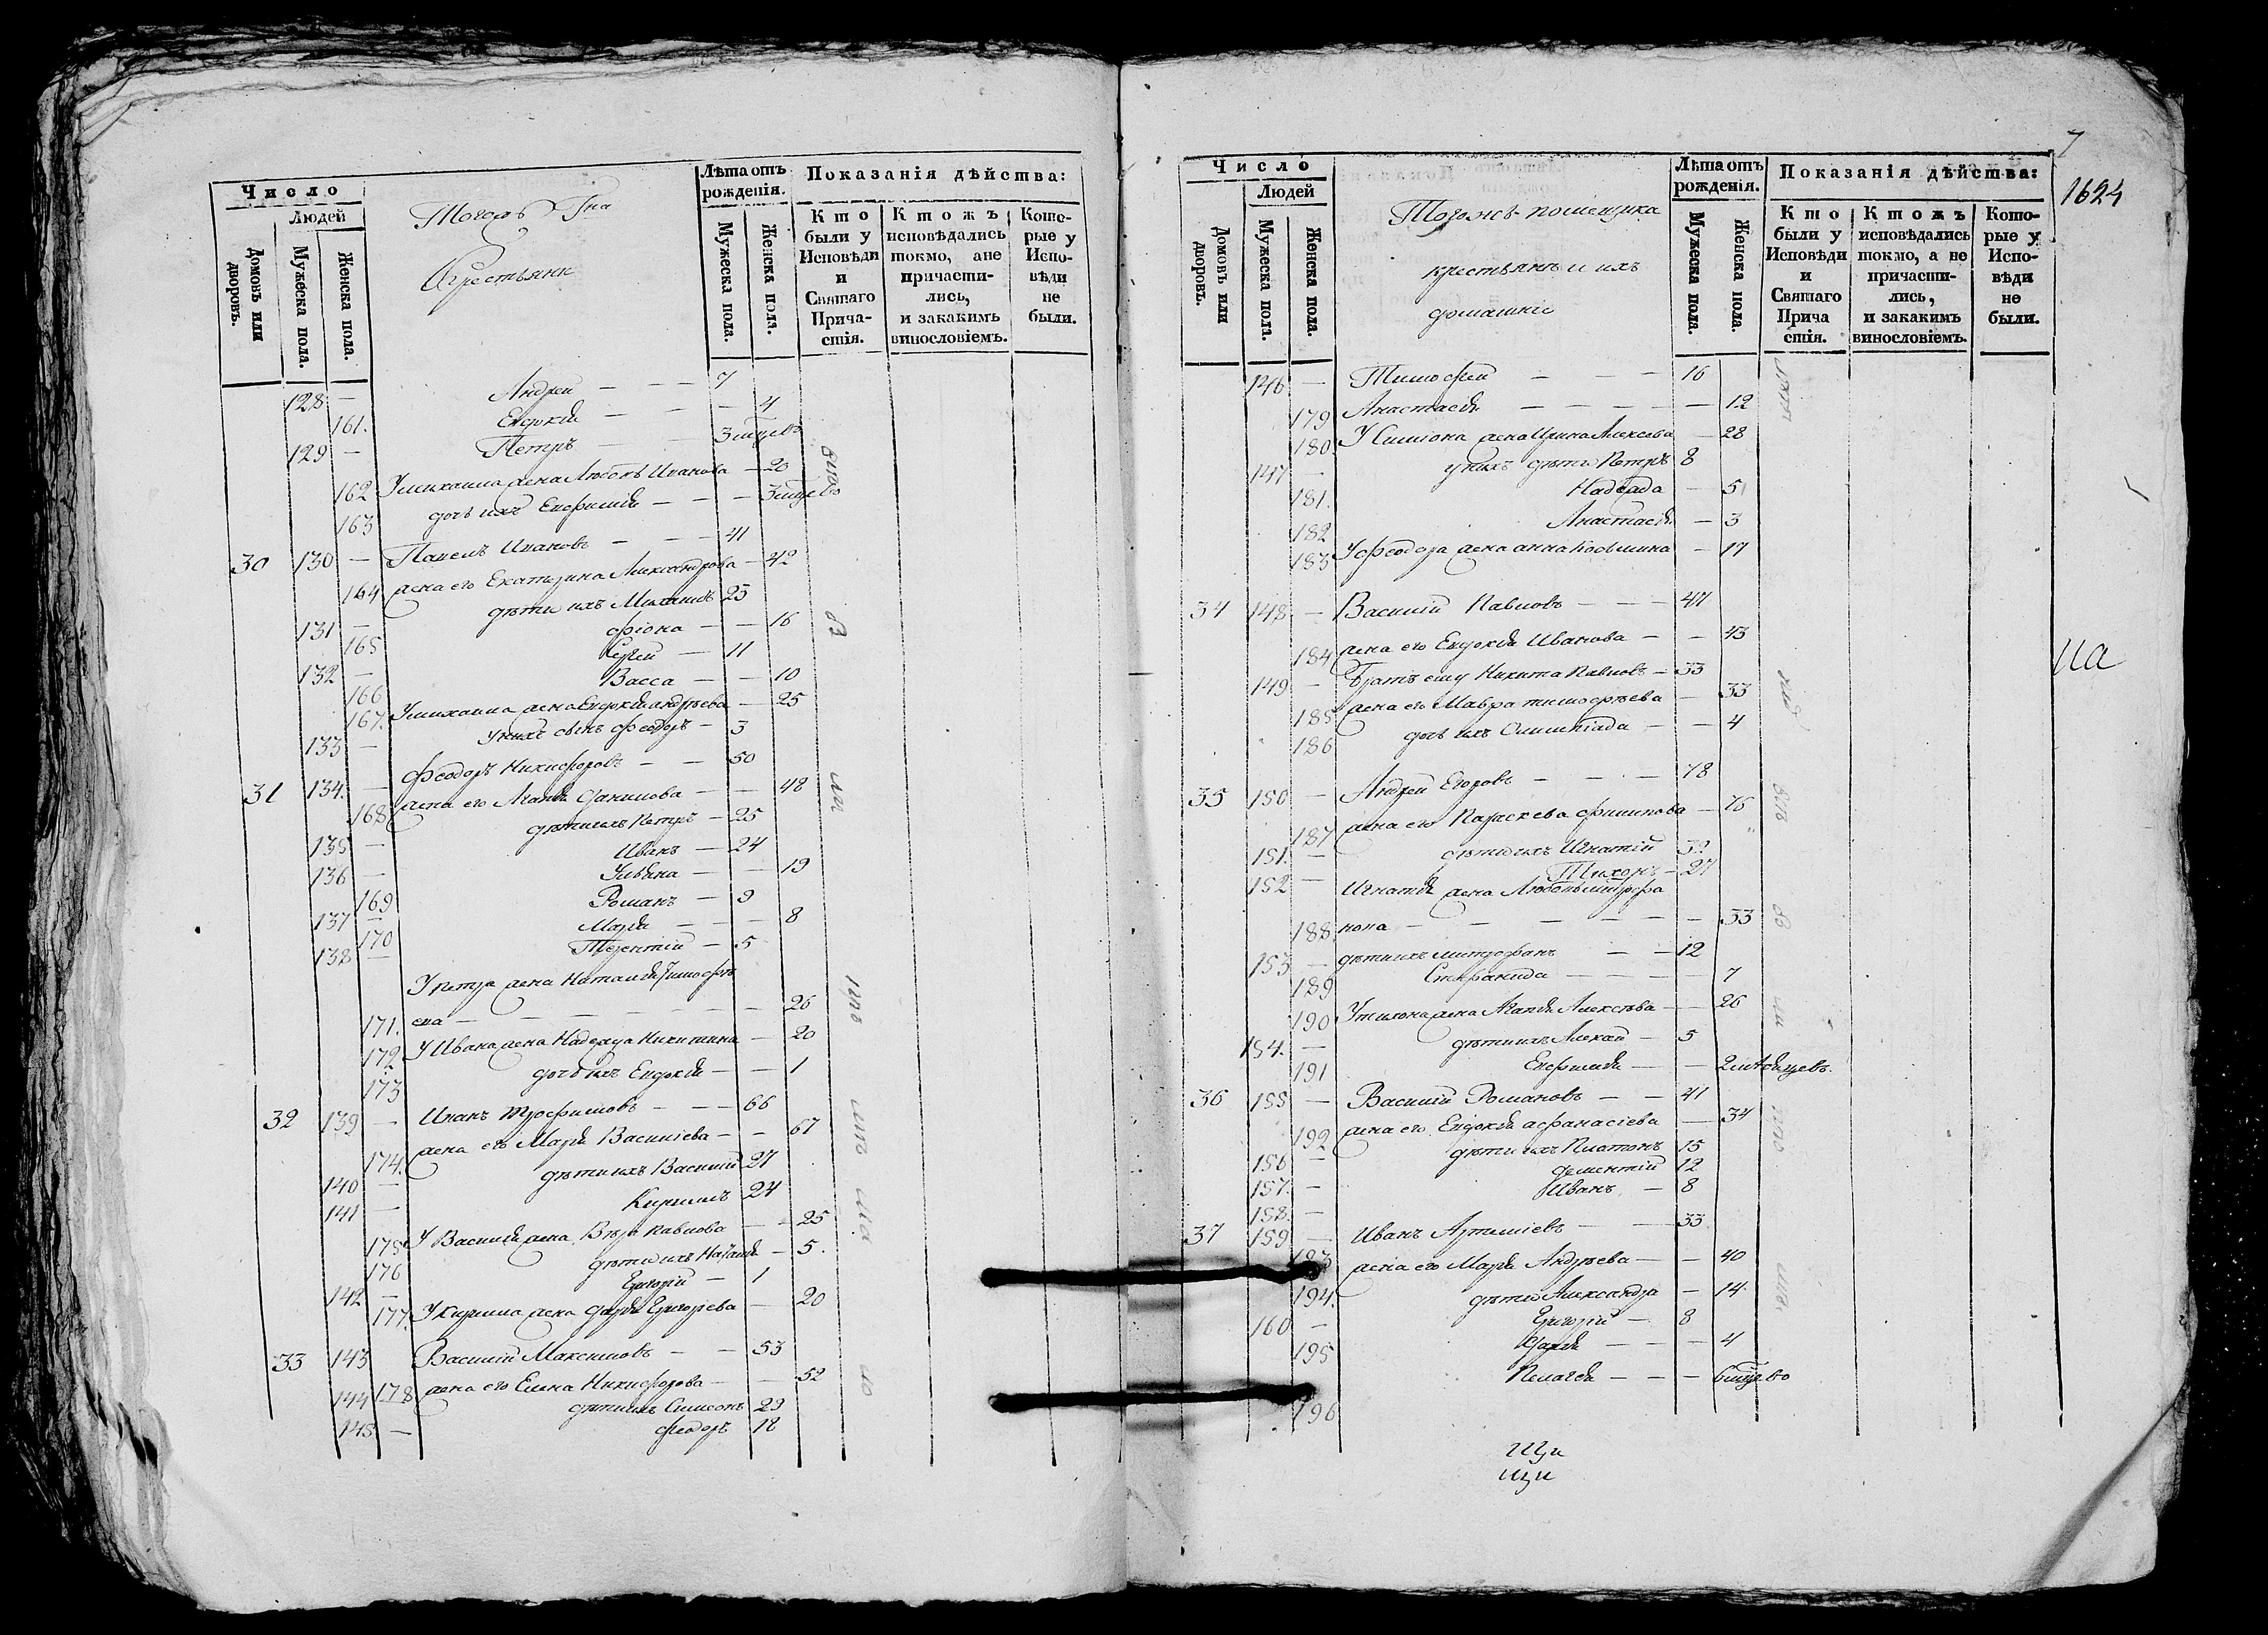 Число
Людей
Домовъ или дворовъ.
Мужеска пола.
Женска пола.
Крестьяне
Лѣта отъ рожденія.
Мужеска пола.
Женска пола.
Показанія дѣйства:
Кто были у Исповѣди и Святаго Причастія.
Ктожъ исповѣдались токмо, ане причастились, и закакимъ винословіемъ.
Которые у Исповѣди не были.
128 — Андрей — — — 7
161. Евдокія — — — 4
129 — Петръ — 3
162 У михаила жена Любовь Иванова — 20
163 дочь ихъ Евфимія — — — 3
30 130 — Павелъ Ивановъ — — — 41
164 жена его Екатерина Александрова — 42
131 — дѣти ихъ Михаилъ 25
165 фіона — — 16
132 — Сергей — 11
166 Васса — — 10
167. У михаила жена Евдокія андрѣева — 25
133 — у нихъ сынъ феодоръ — 3
31 134. — Феодоръ Никифоровъ — — 50
168 жена его Агафія Данилова — — 48
135 — дѣти ихъ Петръ — 25
136 — Иванъ — 24
169 Ульяна — — 19
137 — Романъ — 9
170 Марія — — — 8
138 — Терентій — 5
У петра жена Наталія Тимофѣ
171. ева — — — — — — 26
172 У Ивана жена Надежда Никитина — 20
173 дочь ихъ Евдокія — — 1
32 139 — Иванъ Трофимовъ — — — 66
174. жена его Марія Василіева — — 67
140 — дѣти ихъ Василій 27
141 — Кирилъ 24
175 У Василія жена Вѣра Павлова — — 25
176 дѣти ихъ Наталія — 5.
142 — Григорій — 1
177. У кирила жена Дарія Григоріева — 20
33 143 Василій Максимовъ — — 53
178 жена его Елена Никифорова — — 52
144 — дѣти ихъ Симеонъ 29
145 — феодоръ 18
7
1624
Число
Людей
Домовъ или дворовъ.
Мужеска пола.
Женска пола.
Тогожъ помещика
крестьянъ и ихъ
домашніе
Лѣта отъ рожденія.
Мужеска пола.
Женска пола.
Показанія дѣйства:
Кто были у Исповѣди и Святаго Причастія.
Ктожъ исповѣдались токмо, а не причастились, и закакимъ винословіемъ.
Которые у Исповѣди не были.
146 — Тимофей — — — 16
179 Анастасія — — — — — 12
180 У Симіона жена Ирина Алексѣева — 28
147 — у нихъ дѣти Петръ 8
181. Надежда — 5
182 Анастасія — 3
183 У феодора жена анна Косьмина — 17
34 148 — Василій Павловъ — — — 47
184 жена его Евдокія Иванова — — 43
149 — Братъ ему Никита Павловъ — 33
185 жена его Мавра тимофѣева — 33
186 дочь ихъ Олимпіада — — 4
35 150 — Андрей Егоровъ — — — 78
187 жена его Параскева филипова — 76
151. — дѣти ихъ Игнатій
152 — Тихонъ — 27
Игнатія жена Любовь митрофа
188. нова — — — — — — 33
153 — дѣти ихъ митрофанъ — — 12
189 Степанида — — — — 7
190 У тихона жена Агафія Алексѣева — — 26
154. — дѣти ихъ Алексѣй — 5
191 Евфимія — — 2
36 155 — Василій Романовъ — — 41
192 жена его Евдокія афанасіева — 34
156 — дѣти ихъ Платонъ 15
157. — дементій 12
158. — Иванъ — 8
37 159 — Иванъ Артеміевъ — — 33
193 жена его Марія Андрѣева — — 40
194. дѣти Александра — 14
160 — Григорій — 8
195 Дарія — — — 4
196 Пелагея — — — 6